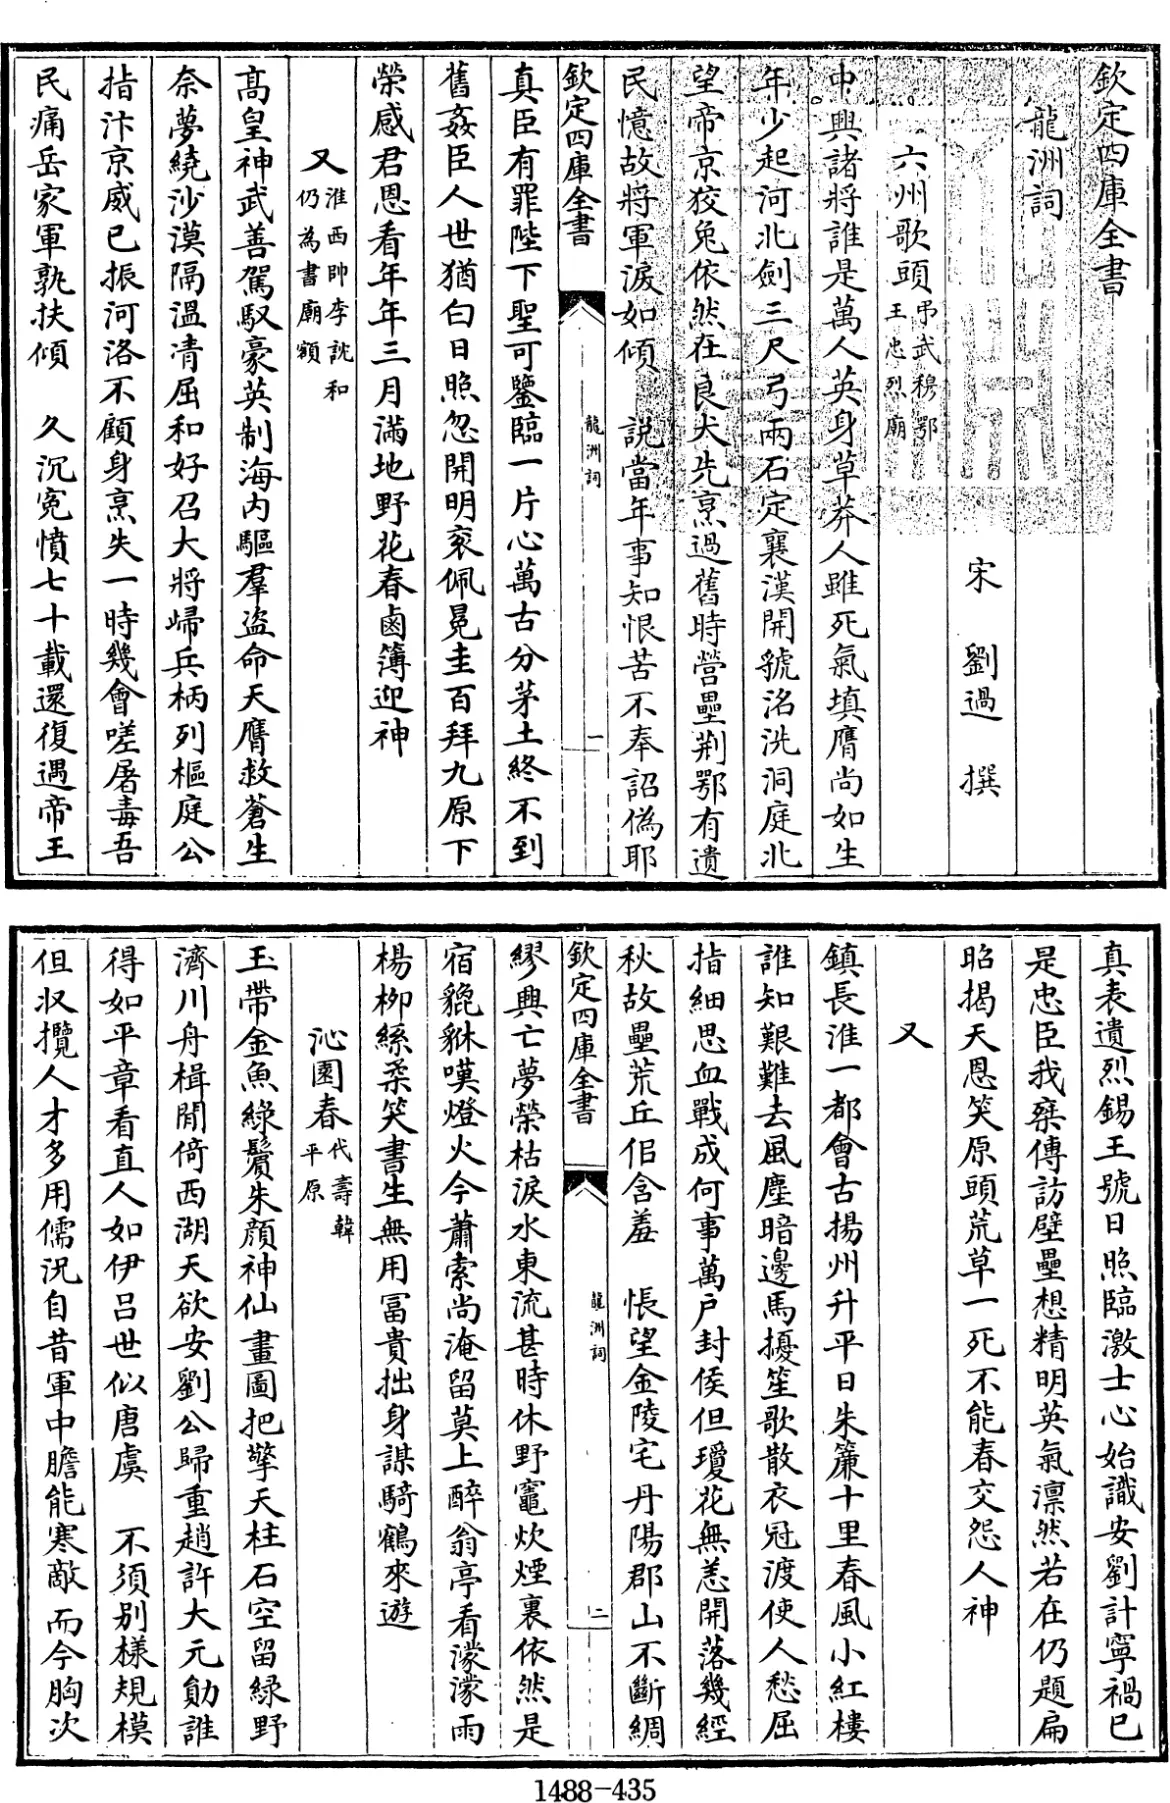 欽定四庫全書
龍洲詞
宋 劉過 撰
六州歌頭 弔武穆鄂王忠烈廟
中興諸將誰是萬人英身草莽人雖死氣填膺尚如生
年少起河北劍三尺弓兩石定襄漢開虢洛洗洞庭北
望帝京狡兔依然在良犬先烹過舊時營壘荆鄂有遺
民憶故將軍淚如傾 說當年事知恨苦不奉詔偽耶
欽定四庫全書
龍洲詞
一
真臣有罪陛下聖可鑒臨一片心萬古分茅土終不到
舊姦臣人世猶白日照忽開明衮佩冕圭百拜九原下
榮感君恩看年年三月滿地野花春鹵簿迎神
又 淮西帥李訦和仍為書廟額
高皇神武善駕馭豪英制海内驅羣盜命天膺救蒼生
奈夢繞沙漠隔溫凊屈和好召大將歸兵柄列樞庭公
指汴京威已振河洛不顧身烹失一時幾會嗟屠毒吾
民痛岳家軍孰扶傾 久沉寃憤七十載還復遇帝王
真表遺烈錫王號日照臨激士心始識安劉計寧禍已
是忠臣我來傳訪壁壘想精明英氣凛然若在仍題扁
昭揭天恩笑原頭荒草一死不能春交怨人神
又
鎮長淮一都會古揚州升平日朱簾十里春風小紅樓
誰知艱難去風塵暗邊馬擾笙歌散衣冠渡使人愁屈
指細思血戰成何事萬户封侯但瓊花無恙開落幾經
秋故壘荒丘佀含羞 悵望金陵宅丹陽郡山不斷綢
欽定四庫全書
龍洲詞
二
繆興亡夢榮枯淚水東流甚時休野竈炊煙裏依然是
宿貔貅嘆燈火今蕭索尚淹留莫上醉翁亭看濛濛雨
楊柳絲柔笑書生無用冨貴拙身謀騎鶴來遊
沁園春 代壽韓平原
玉帶金魚綠鬢朱顔神仙畫圖把擎天柱石空留緑野
濟川舟楫閒倚西湖天欲安劉公歸重趙許大元勛誰
得如平章看直人如伊吕世似唐虞 不須别様規模
但収攬人才多用儒況自昔軍中膽能寒敵而今胸次
1488-435